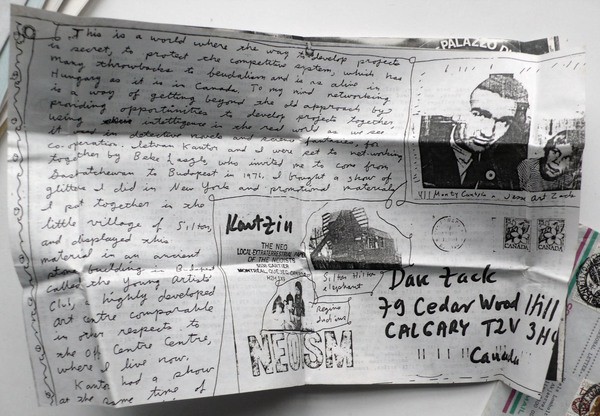 This is a world where the way to develop projects
is secret, to protect the competitive system, which has
many throwbacks to feudalism and is as alive in
Hungary as it is in Canada. To my mind networking
is a way of getting beyond the old approach by
providing opportunities to develop projects together
using intelligence in the real world as we see
it used in detective novels and science fantasies, for
co-operation. Istvan Kantor and I were led to networking
together by Beke Laszlo, who invited me to come from
Saskatchewan to Budapest in 1976. I brought a show of
glitter I did in New York and promotional materials
I put together in the
little village of Silton,
and displayed this
material in an ancient
building in Buda
called the Young Artists'
Club, a highly developed
art centre comparable
in our respects to
the Off Centre Centre,
where I live now.
Kantor had a show
at the same time of
PALAZZO D
VII Monty Cantsin - Jean Art Zack
Kantzin
THE NEO
LOCAL EXTRATERRESTRIAL
OF THE NEOISTS
MONTREAL, QUEBEC, CANADA
H2H1X1
Silton Hilton
elephant
Regina
Indians
NEOSM
CANADA
CANADA
Dan Zack
79 Cedar Wood Hill
CALGARY T2V 3H
Canada